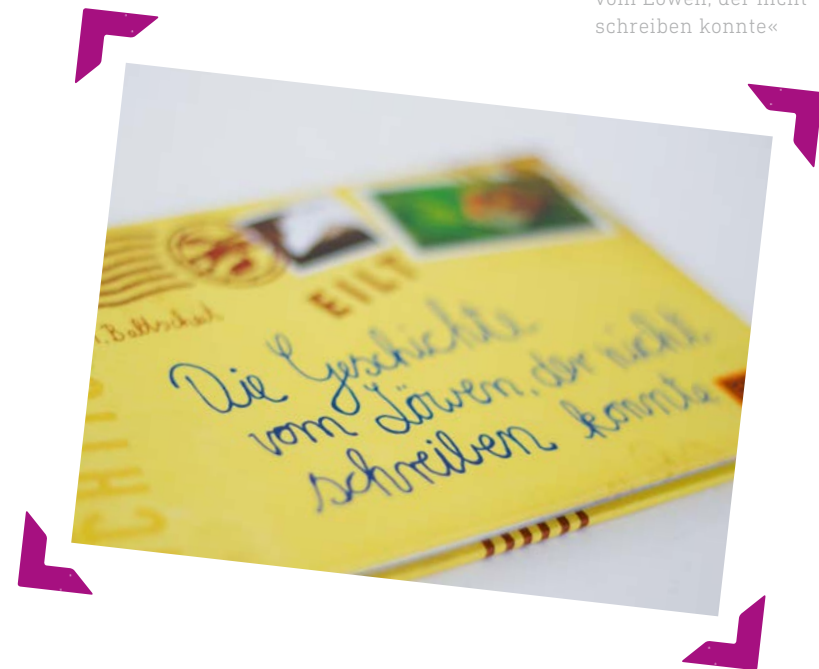 vom Löwen, der nicht
schreiben konnte«
EILT
M. Baltscheit
Die Geschichte
vom Löwen, der nicht
schreiben konnte